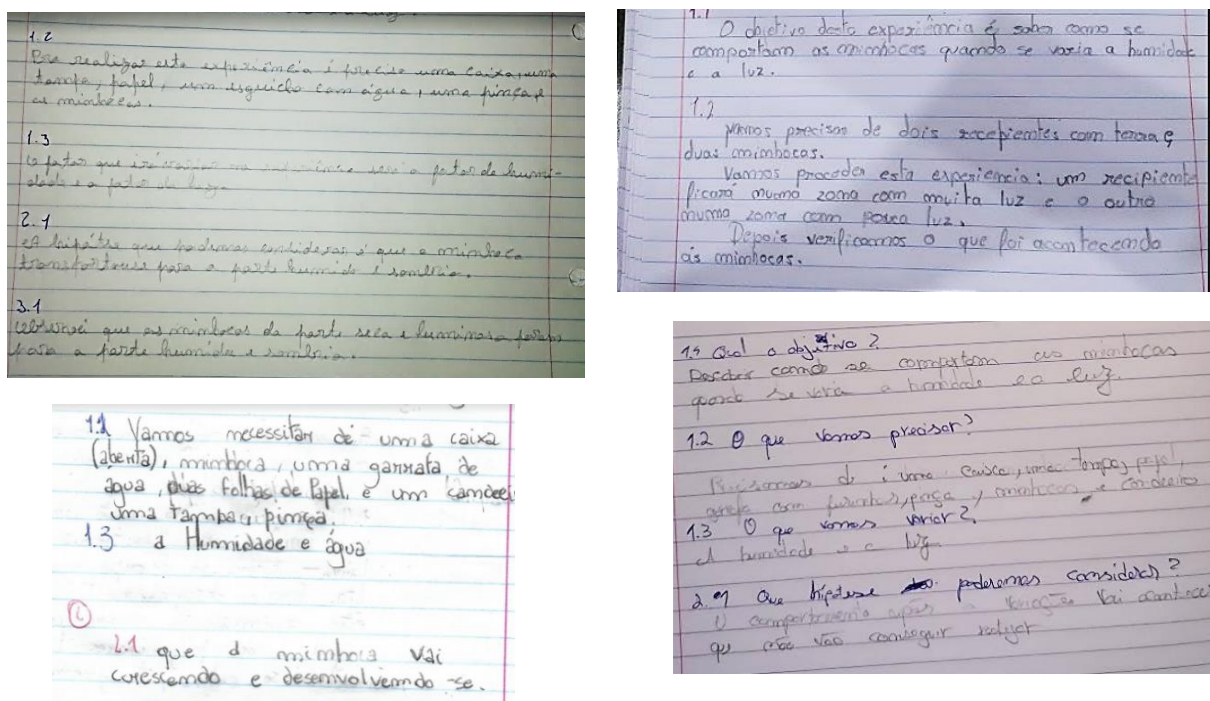 1.2
Pra realizar esta experiência é preciso uma caixa, uma
tampa, papel, um esguicho com água, uma pinça e
as minhocas.
1.3
O fator que irá variar na experiência será o fator de humi-
dade e o fator de luz
2.1
A hipótese que podemos considerar é que a minhoca
transportouse para a parte humida e sombria.
3.1
Observei que as minhocas da parte seca e luminosa foram
para a parte humida e sombria.
1.1
O objetivo desta experiência é saber como se
comportam as minhocas quando se varia a humidade
e a luz.
1.2
Vamos precisar de dois recepientes com terra e
duas minhocas.
Vamos proceder esta experiencia: um recipiente
ficará numa zona com muita luz e o outro
numa zona com pouca luz.
Depois verificamos o que foi acontecendo
ás minhocas.
1.1 Vamos necessitar de uma caixa
(aberta), minhoca, uma garrafa de
água, duas folhas de Papel, e um
uma tampa, pinça.
1.3 a Humidade e água
2.1 que a minhoca vai
crescendo e desenvolvendo-se.
1.1 Qual o objetivo?
Descobrir como se comportam as minhocas
quando se varia a humidade e a luz.
1.2 O que vamos precisar?
Precisamos de: uma caixa, uma tampa, papel,
com furinhos, pinça, minhocas e candeeiro
1.3 O que vamos variar?
A humidade e a luz
2.1 Que hipótese poderemos considerar?
O comportamento após a variação vai acontecer
que não vão conseguir